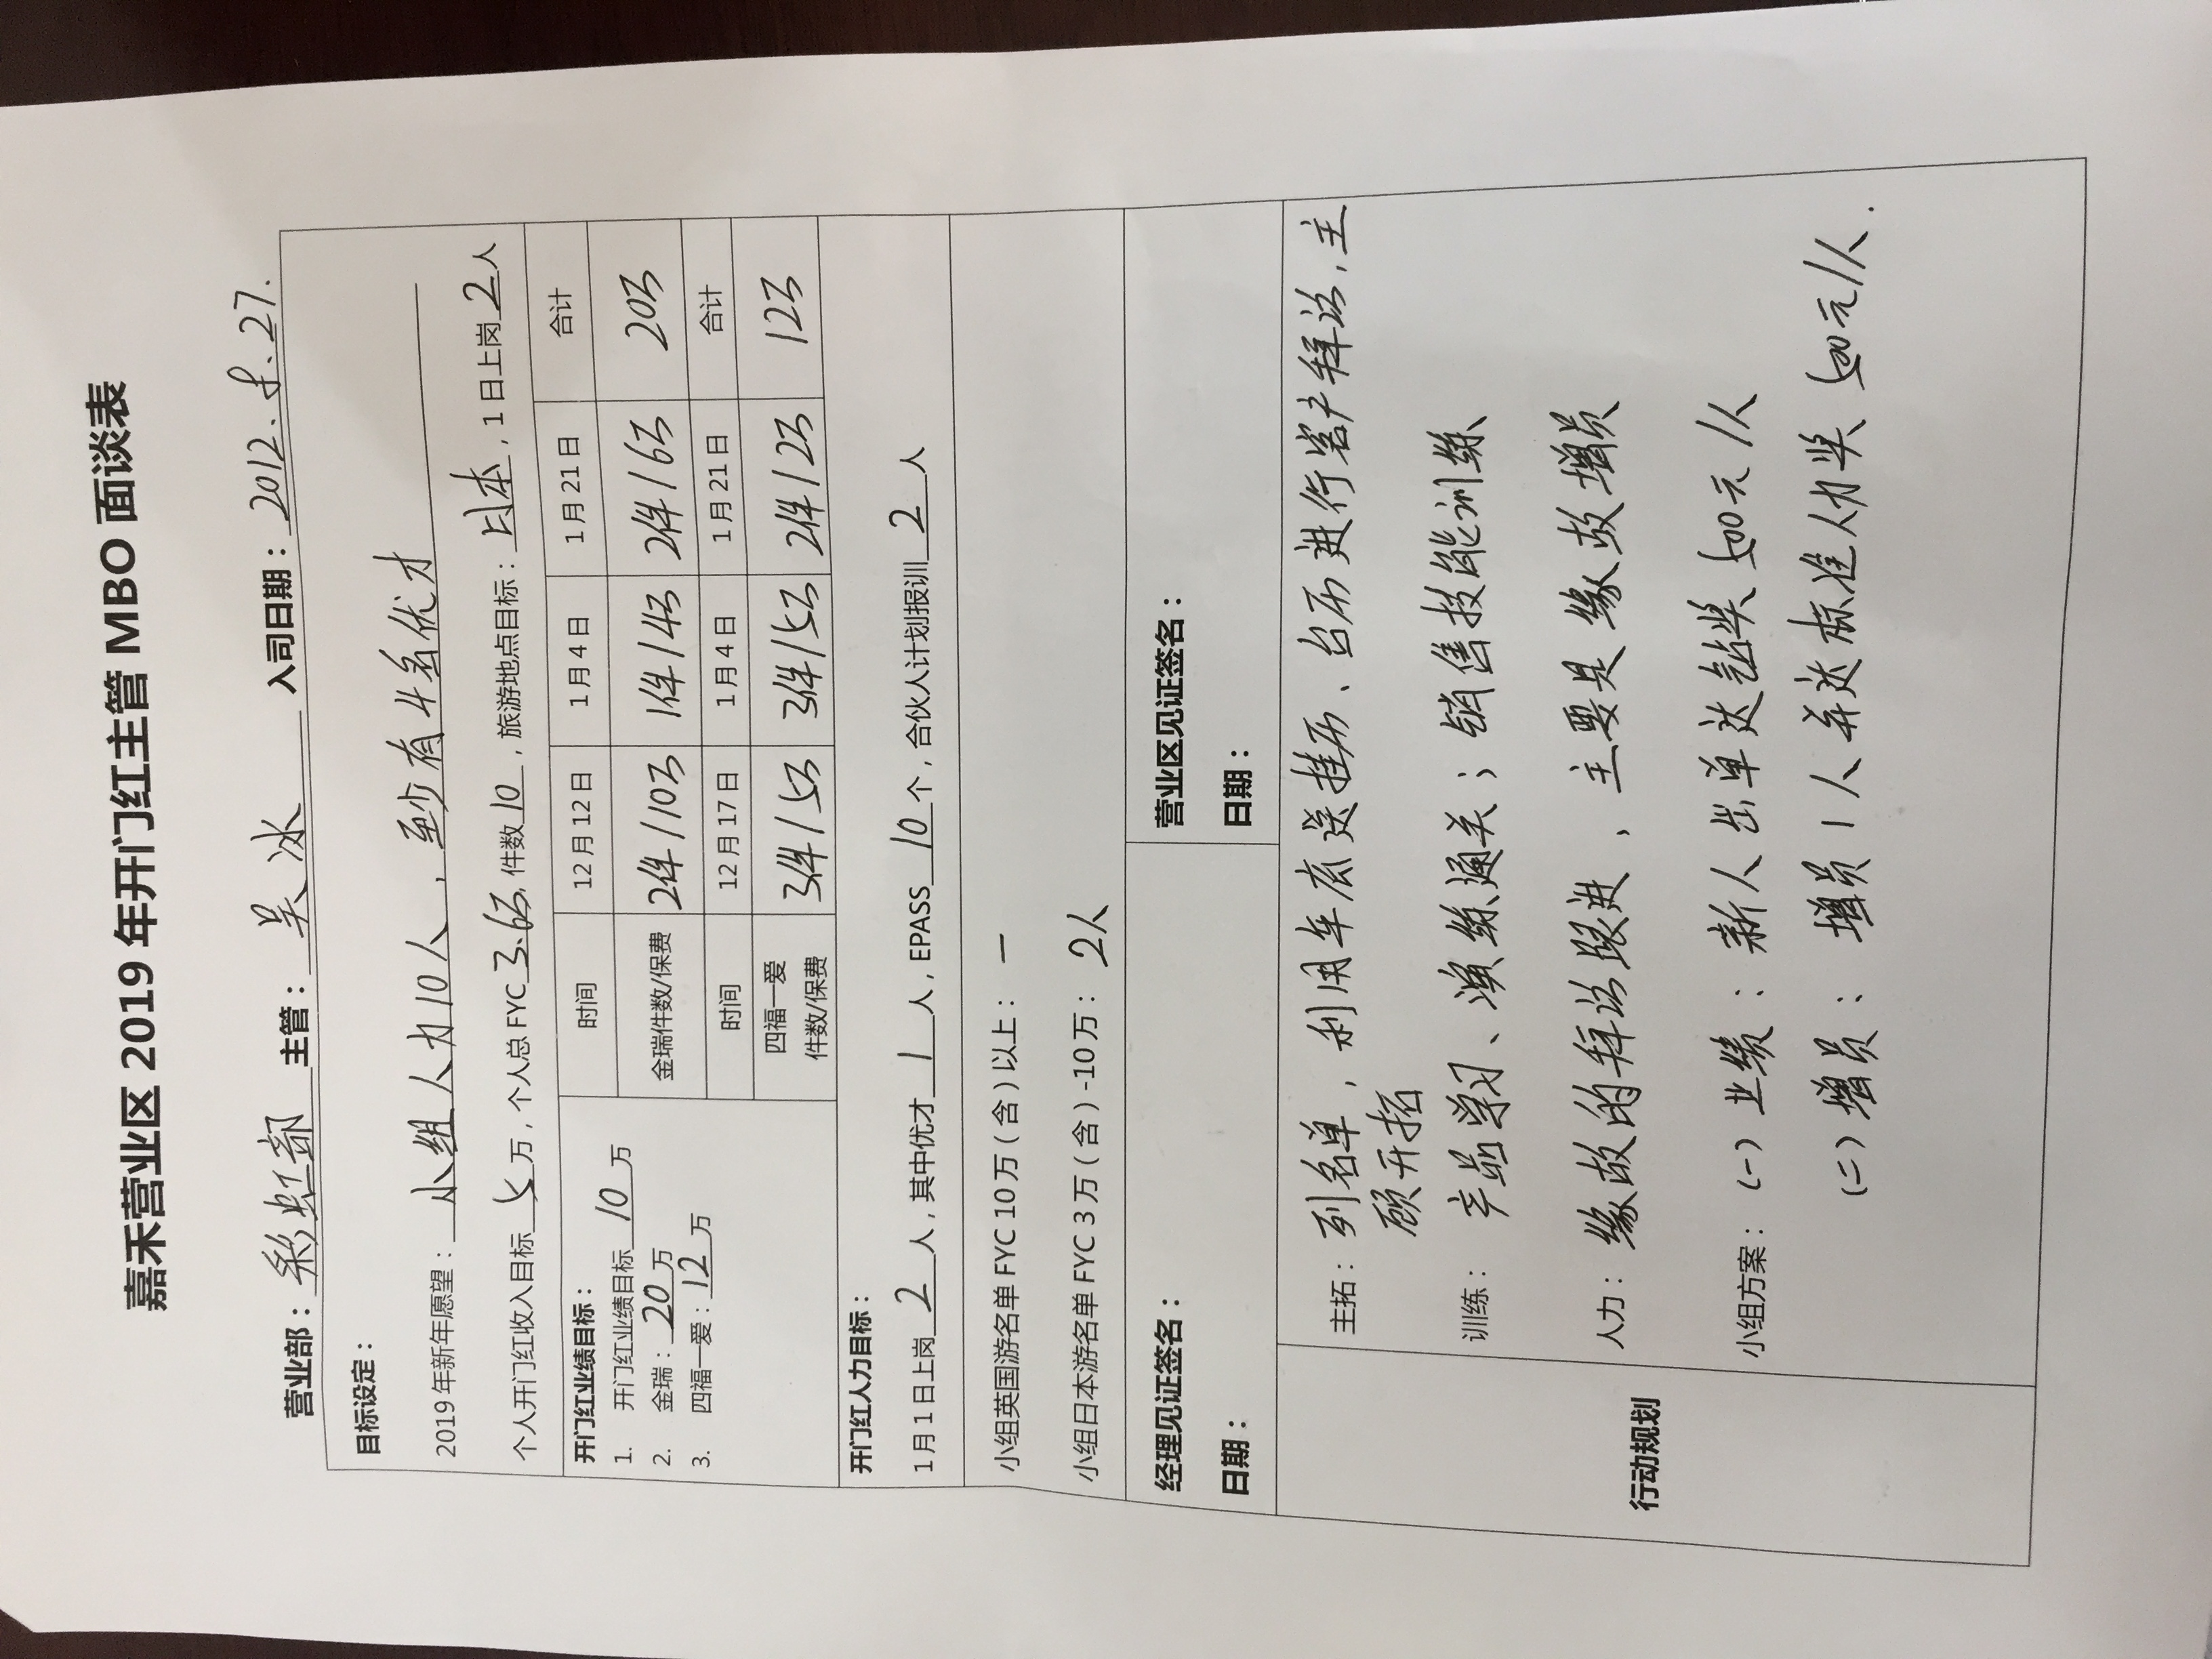 嘉禾营业区 2019 年开门红主管 MBO 面谈表
营业部：彩虹部 主管：吴冰 入司日期：2012.8.27.
目标设定：
2019 年新年愿望：小组人力10人，至少有4名优才
个人开门红收入目标 5 万，个人总 FYC 3.6万，件数 10，旅游地点目标：日本，1 日上岗 2 人
开门红业绩目标：
1. 开门红业绩目标 10 万
2. 金瑞：20 万
3. 四福一爱：12 万
时间 12 月 12 日 1 月 4 日 1 月 21 日 合计
金瑞件数/保费 2件/10万 1件/4万 2件/6万 20万
时间 12 月 17 日 1 月 4 日 1 月 21 日 合计
四福一爱 件数/保费 3件/5万 3件/5万 2件/2万 12万
开门红人力目标：
1 月 1 日上岗 2 人，其中优才 1 人，EPASS 10 个，合伙人计划报训 2 人
小组英国游名单 FYC 10 万（含）以上：一
小组日本游名单 FYC 3 万（含）-10 万：2人
经理见证签名： 营业区见证签名：
日期： 日期：
行动规划
主拓：列名单，利用年底送挂历、台历进行客户拜访，主
顾开拓
训练：产品学习、演练通关；销售技能训练
人力：缘故的拜访跟进，主要是缘故增员
小组方案：(一)业绩：新人出单达钻奖500元/人
(二)增员：增员1人并达标准人力奖500元/人.